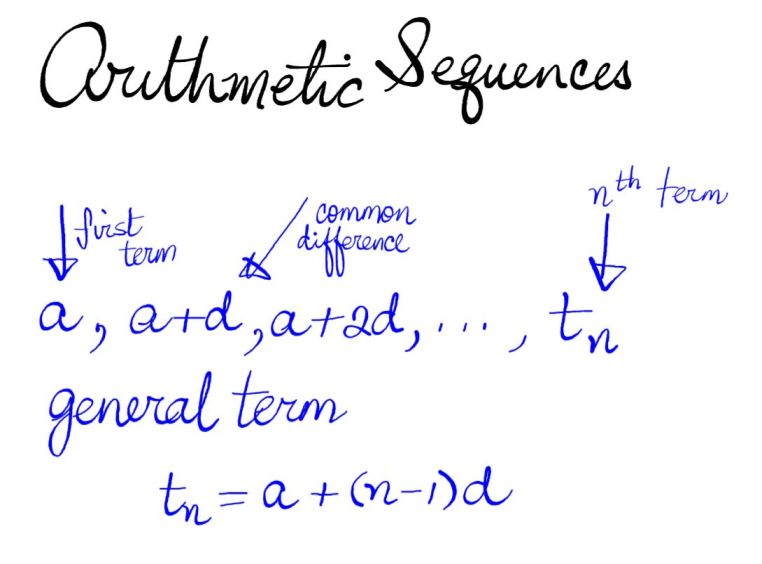 Arithmetic Sequences
nth term
first term
common difference
a, a+d, a+2d, ..., tn
general term
tn = a + (n-1)d